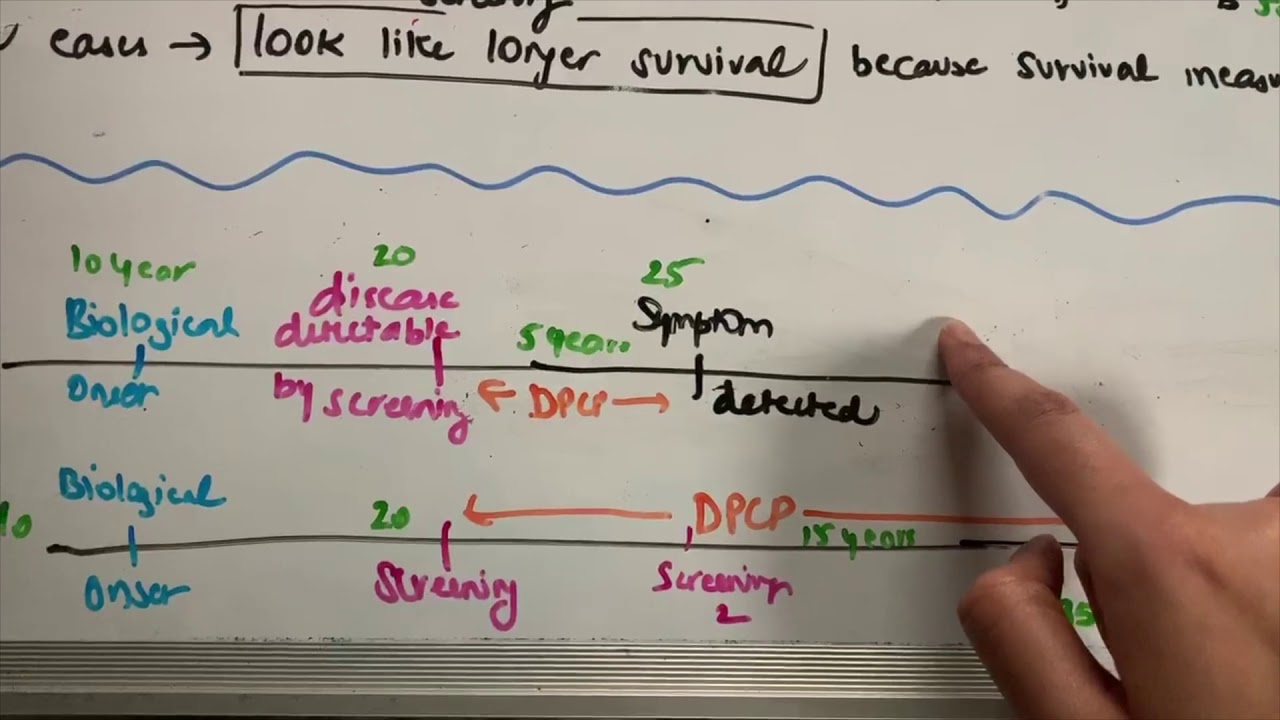 cases → look like longer survival because survival
10 year
20
25
Biological
disease
detectable
5 years
Symptom
Onset
by screening
DPCP
detected
Biological
10
20
DPCP
15 years
Onset
Screening
Screening
2
35